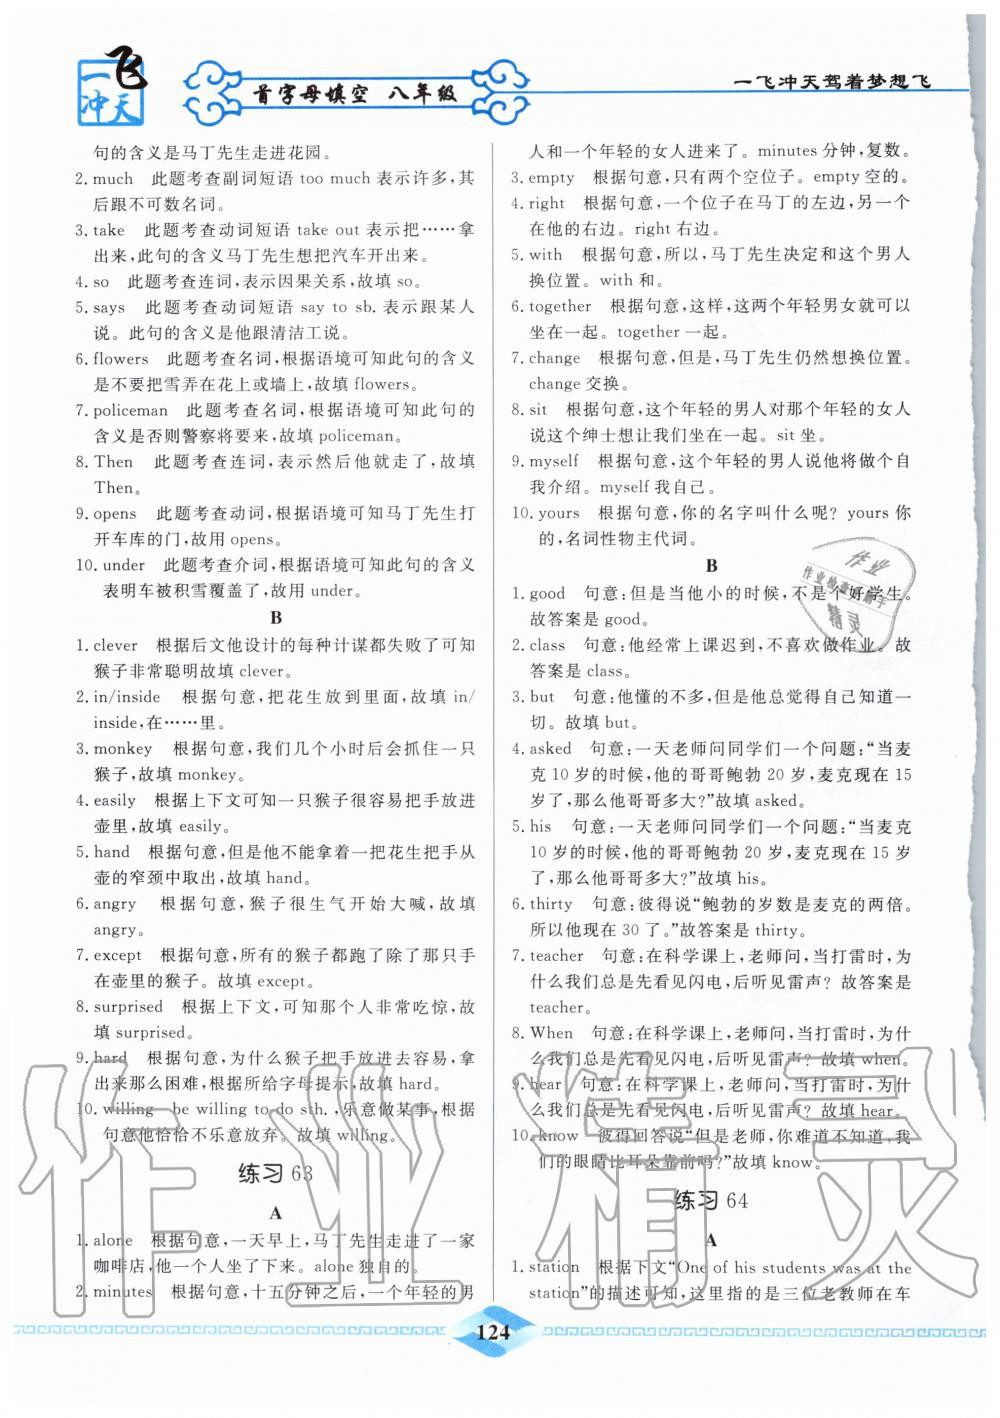 一飞冲天
首字母填空 八年级
一飞冲天驾着梦想飞
句的含义是马丁先生走进花园。
2. much 此题考查副词短语 too much 表示许多,其
后跟不可数名词。
3. take 此题考查动词短语 take out 表示把……拿
出来,此句的含义马丁先生想把汽车开出来。
4. so 此题考查连词,表示因果关系,故填 so。
5. says 此题考查动词短语 say to sb. 表示跟某人
说。此句的含义是他跟清洁工说。
6. flowers 此题考查名词,根据语境可知此句的含义
是不要把雪弄在花上或墙上,故填 flowers。
7. policeman 此题考查名词,根据语境可知此句的
含义是否则警察将要来,故填 policeman。
8. Then 此题考查连词,表示然后他就走了,故填
Then。
9. opens 此题考查动词,根据语境可知马丁先生打
开车库的门,故用 opens。
10. under 此题考查介词,根据语境可知此句的含义
表明车被积雪覆盖了,故用 under。
B
1. clever 根据后文他设计的每种计谋都失败了可知
猴子非常聪明故填 clever。
2. in/inside 根据句意,把花生放到里面,故填 in/
inside,在……里。
3. monkey 根据句意,我们几个小时后会抓住一只
猴子,故填 monkey。
4. easily 根据上下文可知一只猴子很容易把手放进
壶里,故填 easily。
5. hand 根据句意,但是他不能拿着一把花生把手从
壶的窄颈中取出,故填 hand。
6. angry 根据句意,猴子很生气开始大喊,故填
angry。
7. except 根据句意,所有的猴子都跑了除了那只手
在壶里的猴子,故填 except。
8. surprised 根据上下文,可知那个人非常吃惊,故
填 surprised。
9. hard 根据句意,为什么猴子把手放进去容易,拿
出来那么困难,根据所给字母提示,故填 hard。
10. willing be willing to do sth.,乐意做某事,根据
句意他恰恰不乐意放弃。故填 willing。
练习 63
A
1. alone 根据句意,一天早上,马丁先生走进了一家
咖啡店,他一个人坐了下来。alone 独自的。
2. minutes 根据句意,十五分钟之后,一个年轻的男
人和一个年轻的女人进来了。minutes 分钟,复数。
3. empty 根据句意,只有两个空位子。empty 空的。
4. right 根据句意,一个位子在马丁的左边,另一个
在他的右边。right 右边。
5. with 根据句意,所以,马丁先生决定和这个男人
换位置。with 和。
6. together 根据句意,这样,这两个年轻男女就可以
坐在一起。together 一起。
7. change 根据句意,但是,马丁先生仍然想换位置。
change 交换。
8. sit 根据句意,这个年轻的男人对那个年轻的女人
说这个绅士想让我们坐在一起。sit 坐。
9. myself 根据句意,这个年轻的男人说他将做个自
我介绍。myself 我自己。
10. yours 根据句意,你的名字叫什么呢?yours 你
的,名词性物主代词。
B
1. good 句意:但是当他小的时候,不是个好学生。
故答案是 good。
2. class 句意:他经常上课迟到,不喜欢做作业。故
答案是 class。
3. but 句意:他懂的不多,但是他总觉得自己知道一
切。故填 but。
4. asked 句意:一天老师问同学们一个问题:“当麦
克 10 岁的时候,他的哥哥鲍勃 20 岁,麦克现在 15
岁了,那么他哥哥多大?”故填 asked。
5. his 句意:一天老师问同学们一个问题:“当麦克
10 岁的时候,他的哥哥鲍勃 20 岁,麦克现在 15 岁
了,那么他哥哥多大?”故填 his。
6. thirty 句意:彼得说“鲍勃的岁数是麦克的两倍。
所以他现在 30 了。”故答案是 thirty。
7. teacher 句意:在科学课上,老师问,当打雷时,为
什么我们总是先看见闪电,后听见雷声?故答案是
teacher。
8. When 句意:在科学课上,老师问,当打雷时,为什
么我们总是先看见闪电,后听见雷声?故填 when。
9. hear 句意:在科学课上,老师问,当打雷时,为什
么我们总是先看见闪电,后听见雷声?故填 hear。
10. know 彼得回答说“但是老师,你难道不知道,我
们的眼睛比耳朵靠前吗?”故填 know。
练习 64
A
1. station 根据下文“One of his students was at the
station”的描述可知,这里指的是三位老教师在车
124
作业
作业检查小帮手
精灵
作业精灵